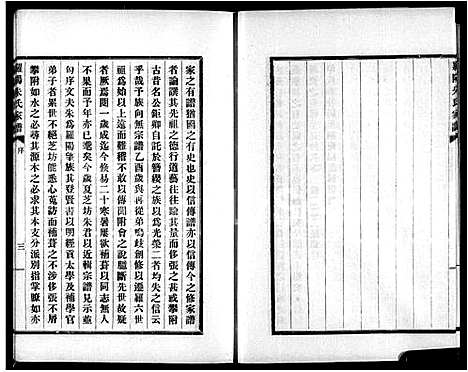 家之有譜猶國之有史也史以信傳今之修家譜
者論譔其先祖之德行道藝往往踰其量而侈張之甚或攀附
古昔名公鉅卿自託於簪稷之族以爲光榮二者均失之信云
乎哉昔嘗於族向無宗譜乙酉歲與再從弟鳴歧創修以遷羅六世
祖爲始以上遠而難稽不敢以傳聞附會之說臆斷先世故疑
者厥焉閱一歲成迄今倏易二十寒暑屢欲補葺以同志無人
不果而年亦已耄矣今歲夏芝坊朱君以近輯宗譜見示並
匄序文夫朱爲羅陽肇族其登賢書以明經貢太學及補學官
弟子者累世不絕芝坊能悉心蒐訪而補葺之不涉侈張不屑
攀附如水之必尋其源木之必求其本支分派別指掌瞭如亦
羅陽朱氏家譜
序
三
羅陽朱氏家譜